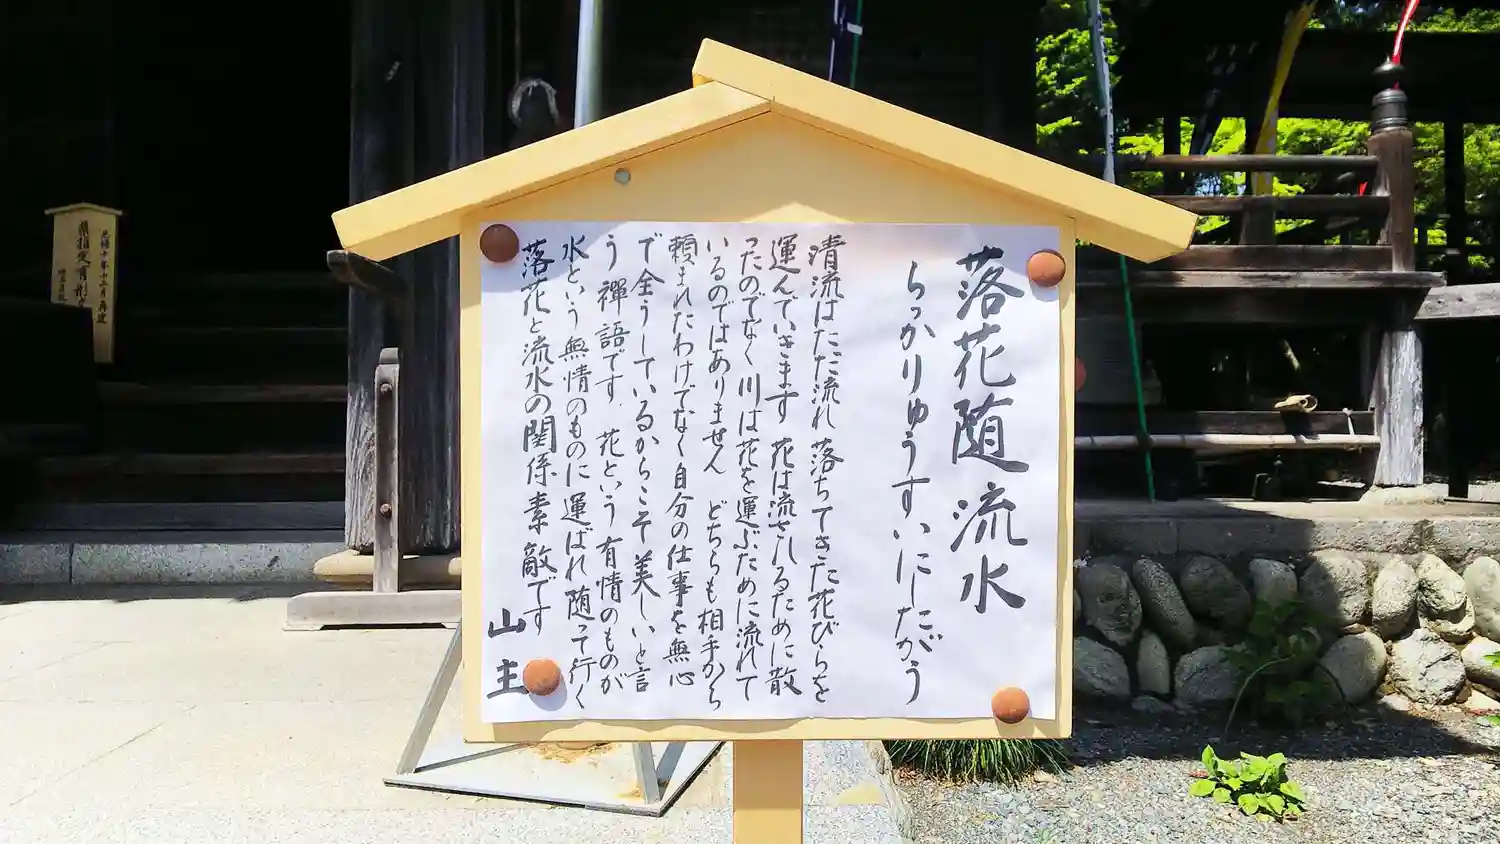 落花随流水
らっかりゅうすいにしたがう
清流はただ流れ 落ちてきた花びらを
運んでいきます 花は流されるために散
ったのでなく 川は花を運ぶために流れて
いるのではありません どちらも相手から
頼まれたわけでなく自分の仕事を無心
で全うしているからこそ美しいと言
う禪語です。花という有情のものが
水という無情のものに運ばれ随って行く
落花と流水の関係素敵です
山主